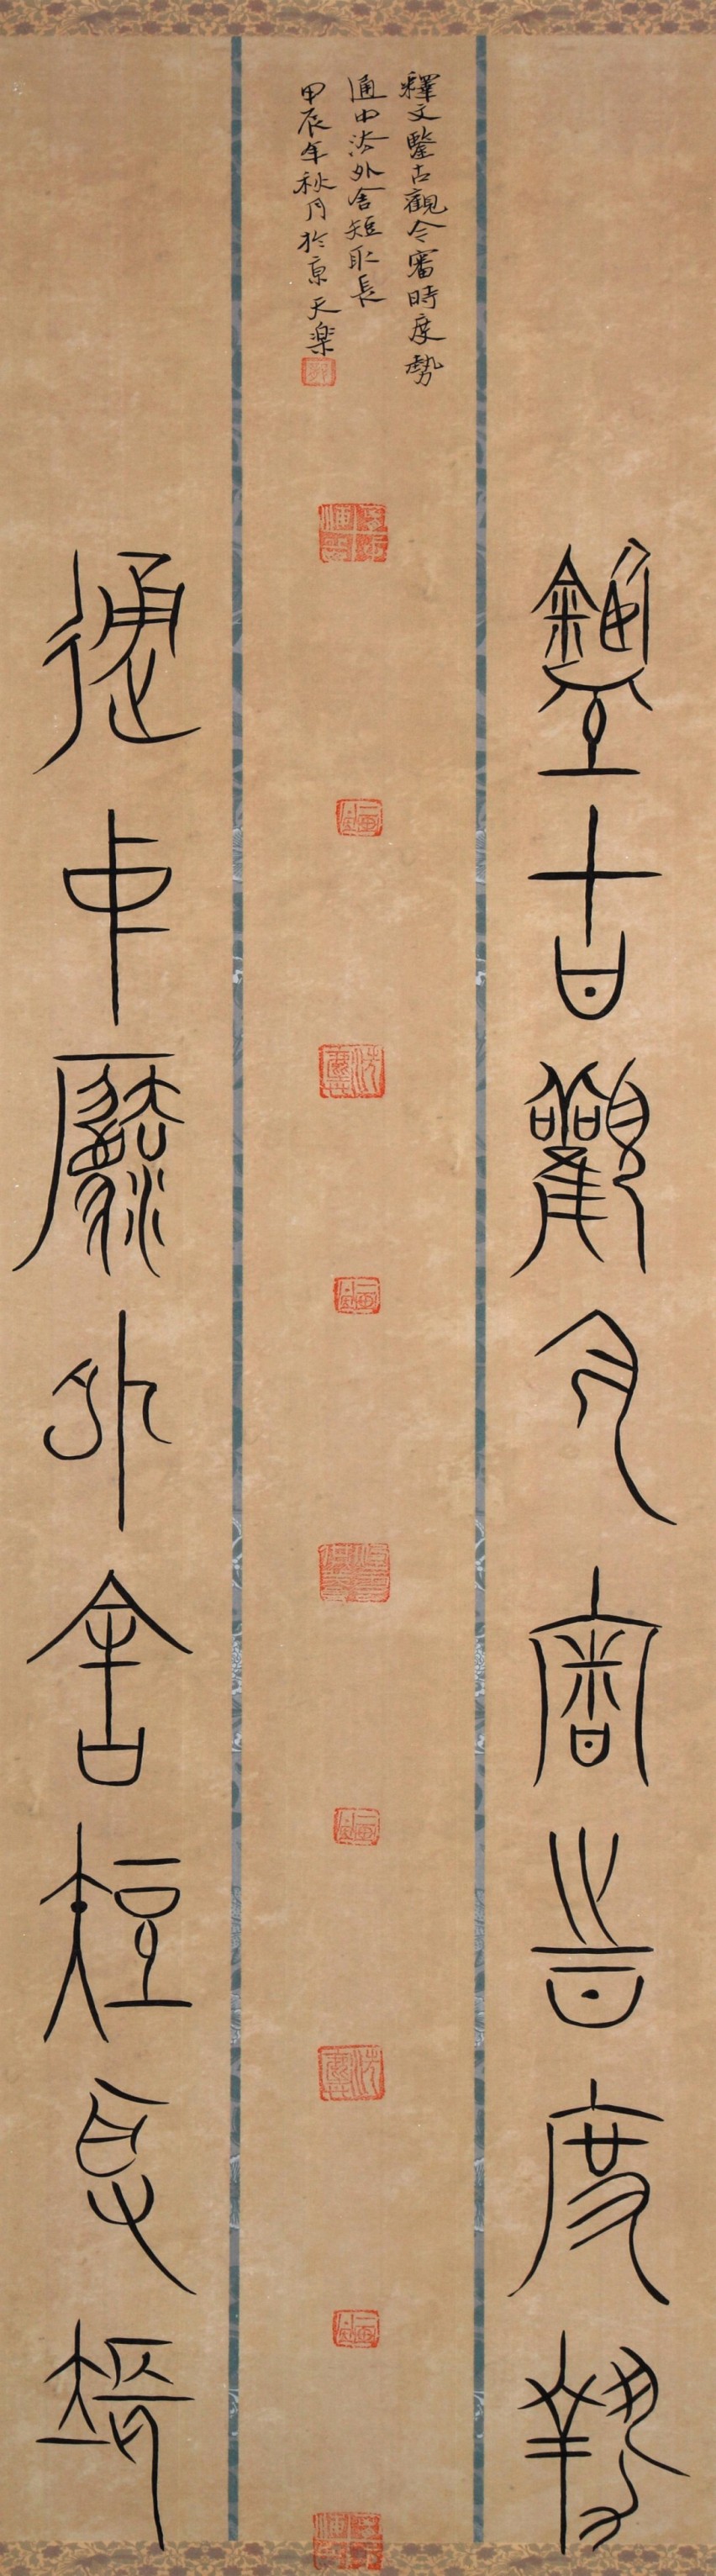 鑒古觀今審時度勢
通中法外舍短取長
釋文鑒古觀今審時度勢
通中法外舍短取長
甲辰年秋月於京天樂